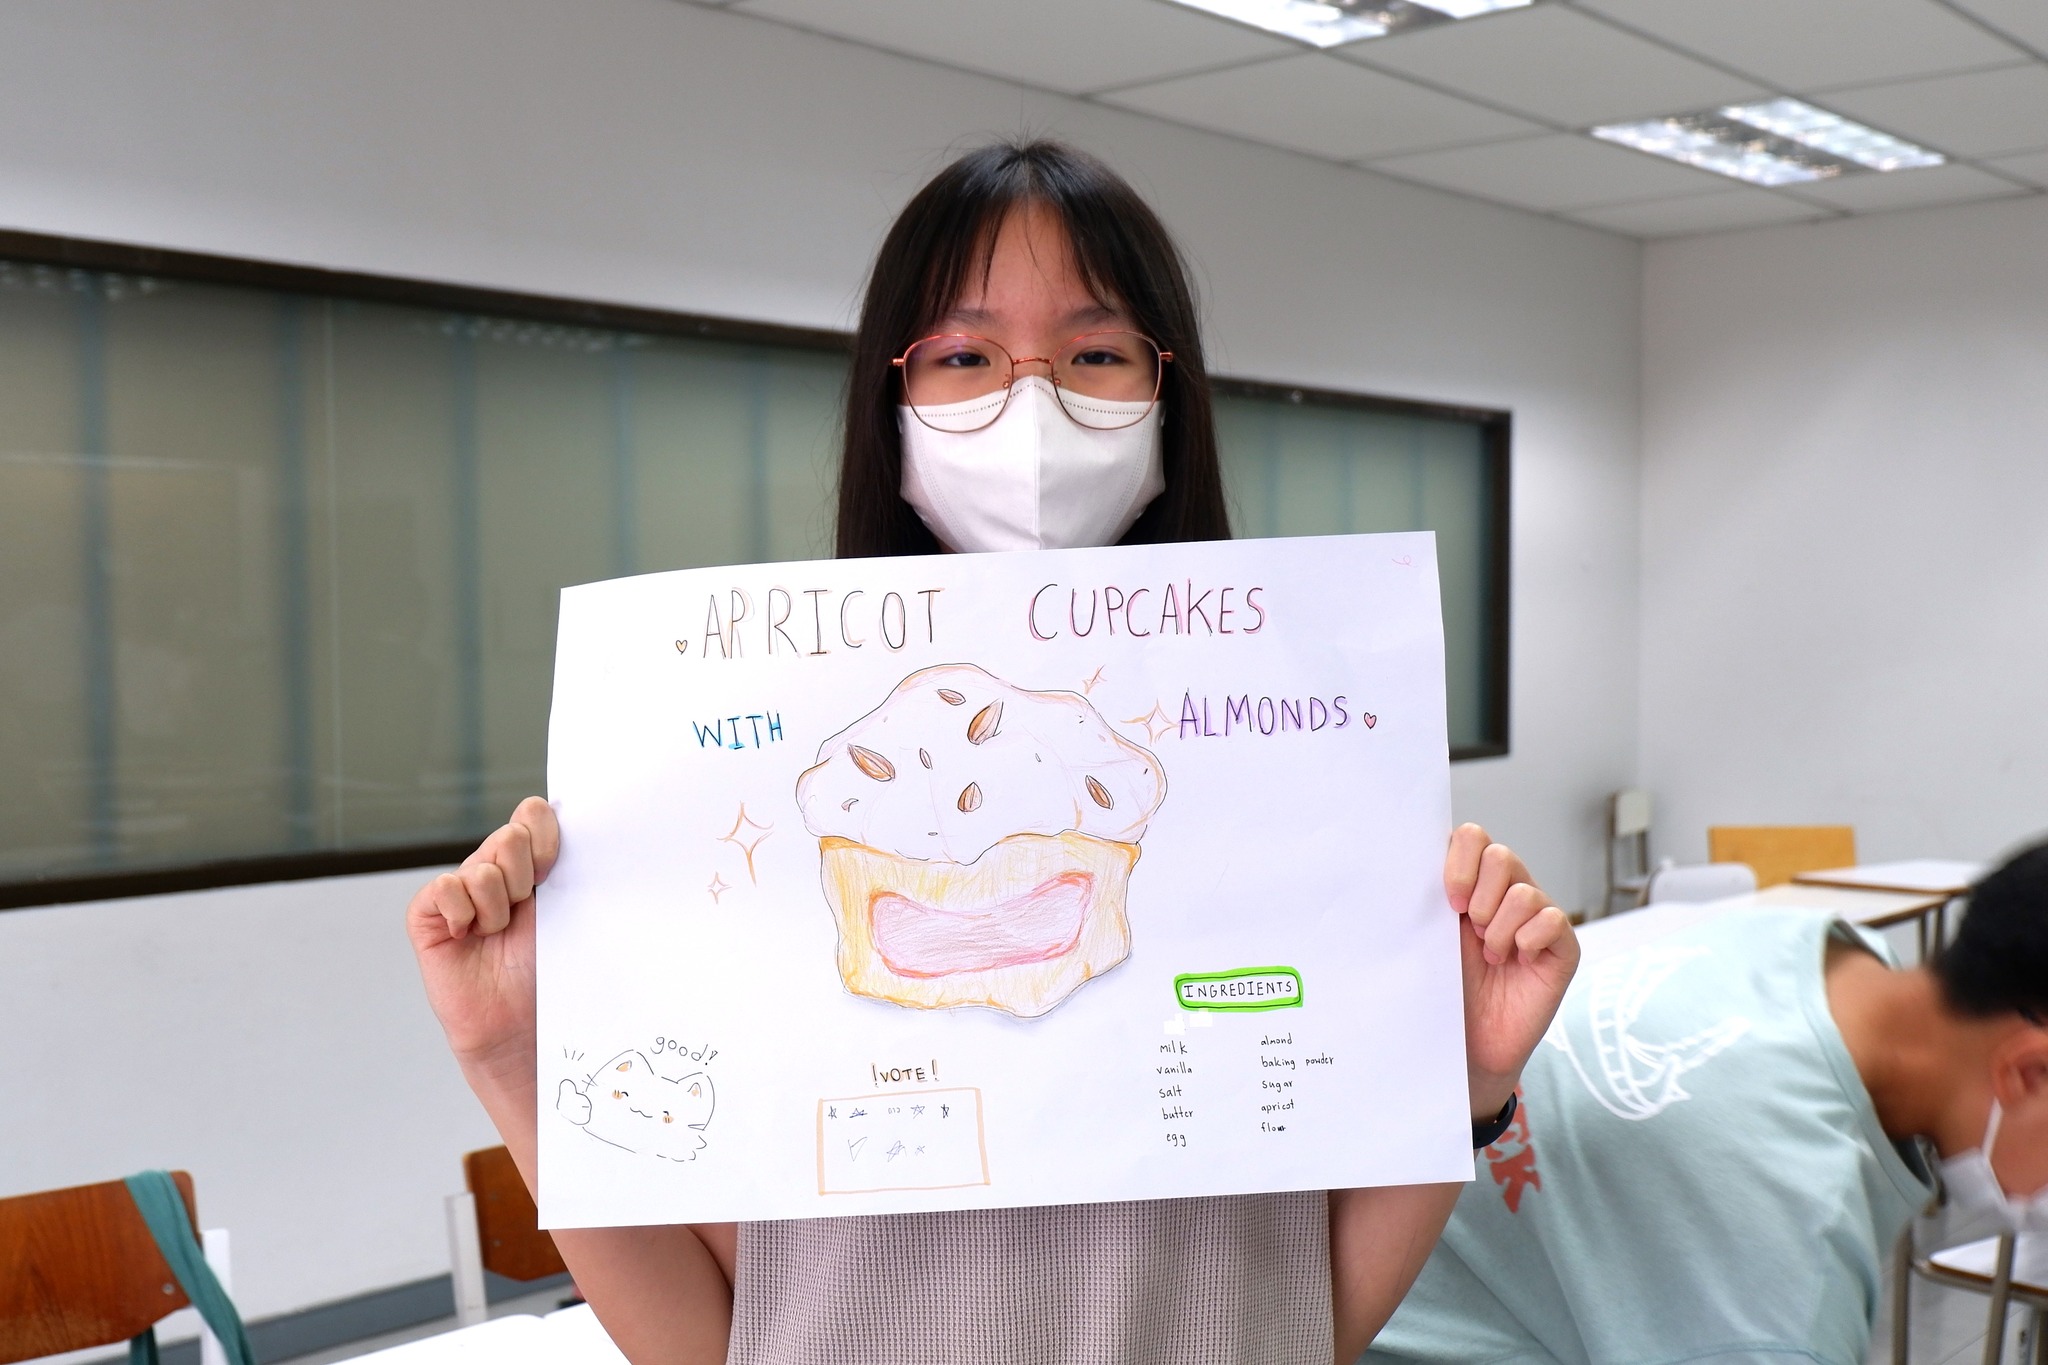 APRICOT CUPCAKES
WITH ALMONDS
good!
!VOTE!
INGREDIENTS
milk
vanilla
salt
butter
egg
almond
baking powder
sugar
apricot
flour